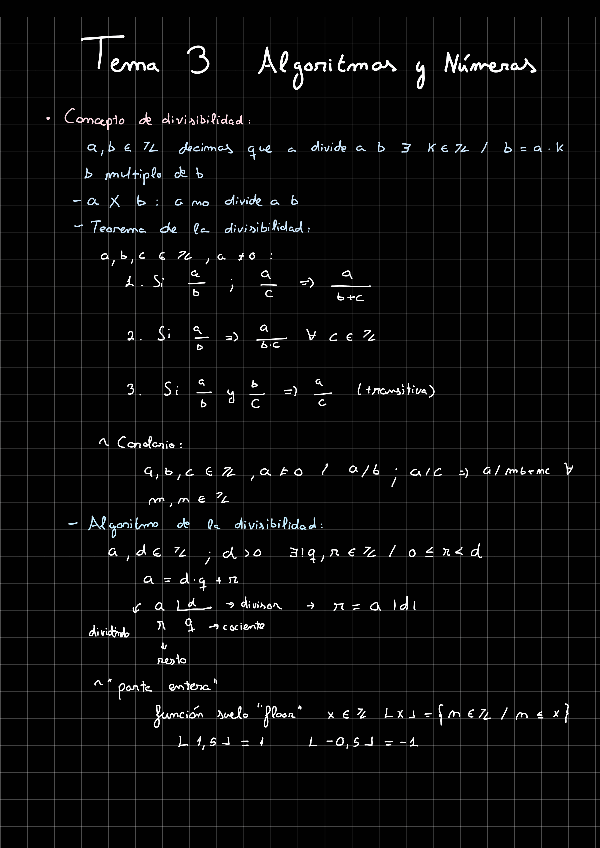 Tema 3 Algoritmos y Números
· Concepto de divisibilidad:
a, b ∈ ℤ decimos que a divide a b ∃ k ∈ ℤ / b = a · k
b multiplo de b
- a ∤ b : a no divide a b
- Teorema de la divisibilidad:
a, b, c ∈ ℤ, a ≠ 0 :
1. Si a/b ; a/c => a/b+c
2. Si a/b => a/b·c ∀ c ∈ ℤ
3. Si a/b y b/c => a/c (transitiva)
~ Corolario:
a, b, c ∈ ℤ, a ≠ 0 / a/b ; a/c => a/mb+nc ∀
m, n ∈ ℤ
- Algoritmo de la divisibilidad:
a, d ∈ ℤ ; d > 0 ∃! q, r ∈ ℤ / 0 ≤ r < d
a = d·q + r
↙ a |d → divisor → r = a |d|
dividendo r q → cociente
↓
resto
~ "parte entera"
función suelo "floor" x ∈ ℤ ⌊x⌋ = {m ∈ ℤ / m ≤ x}
⌊1,5⌋ = 1 ⌊-0,5⌋ = -1